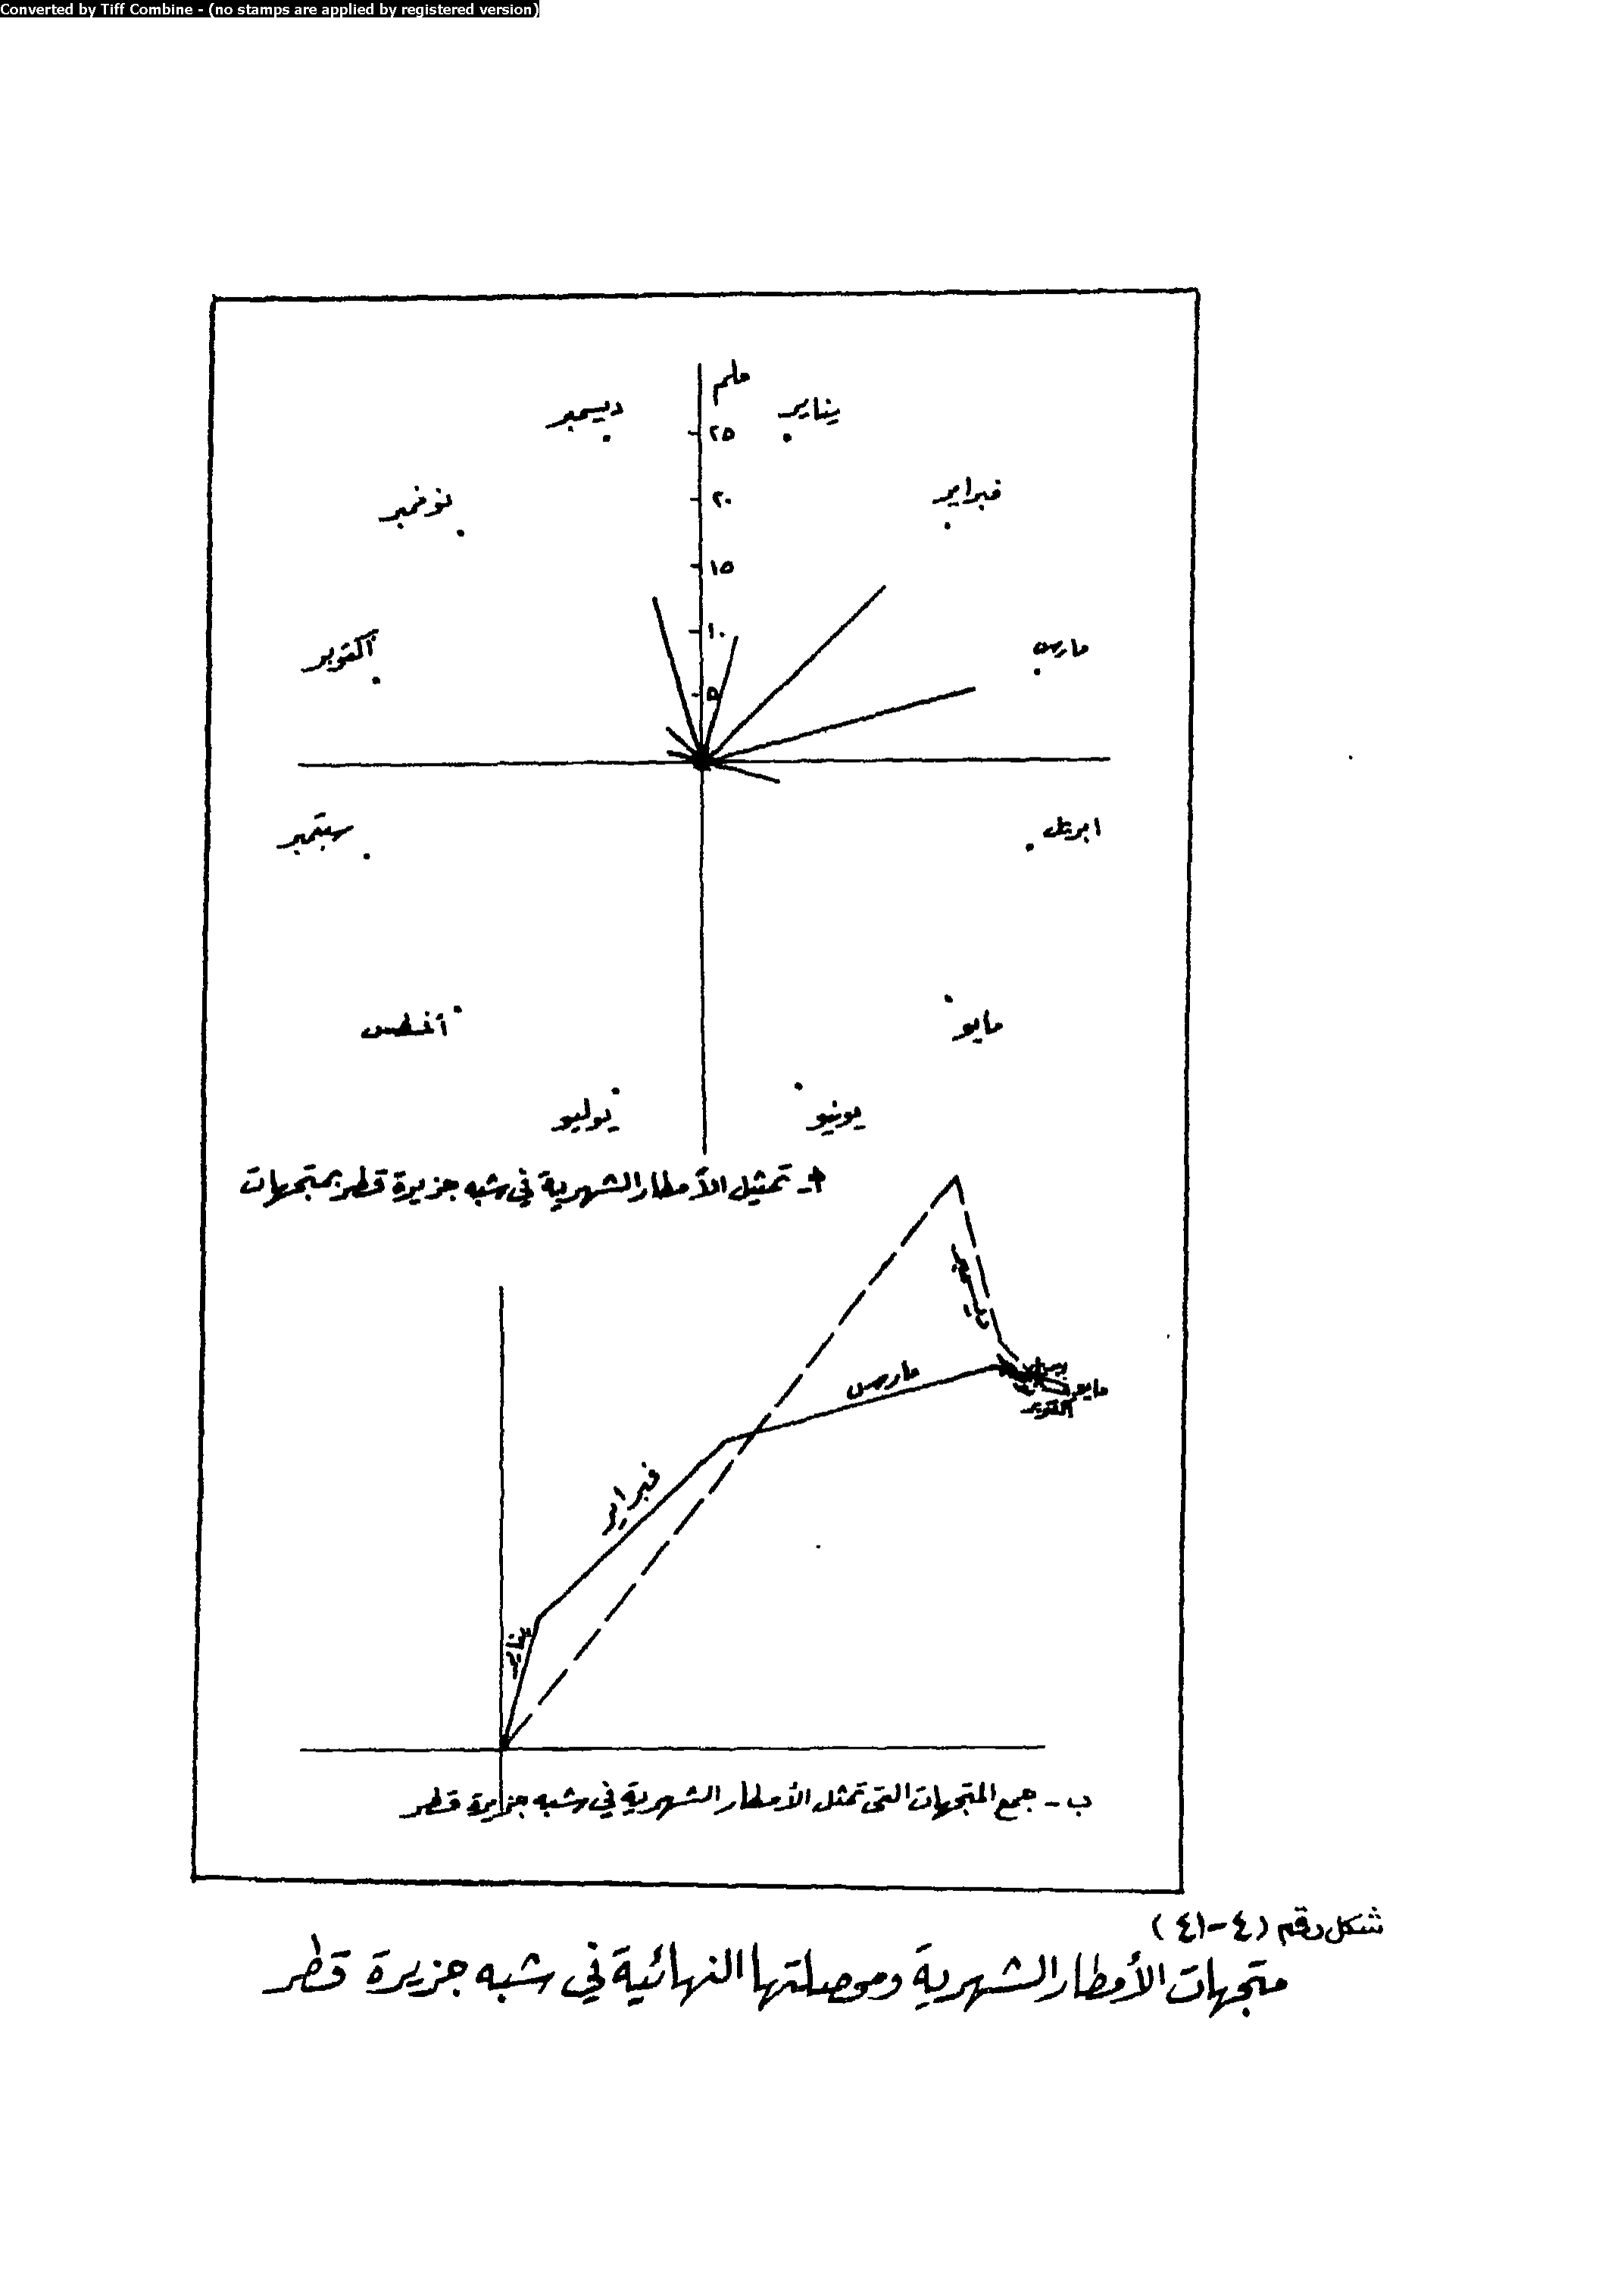 Converted by Tiff Combine - (no stamps are applied by registered version)
ملم
ديسمبر
يناير
٢٥
نوفمبر
٢٠
فبراير
١٥
أكتوبر
١٠
مارس
٥
سبتمبر
ابريل
أغسطس
مايو
يوليو
يونيو
أ - تمثيل الأمطار الشهرية في شبه جزيرة قطر بمتجهات
مارس
مايو
أكتوبر
فبراير
يناير
ب - جمع المتجهات التي تمثل الأمطار الشهرية في شبه جزيرة قطر
شكل رقم (٤-٤١)
متجهات الأمطار الشهرية ومحصلتها النهائية في شبه جزيرة قطر